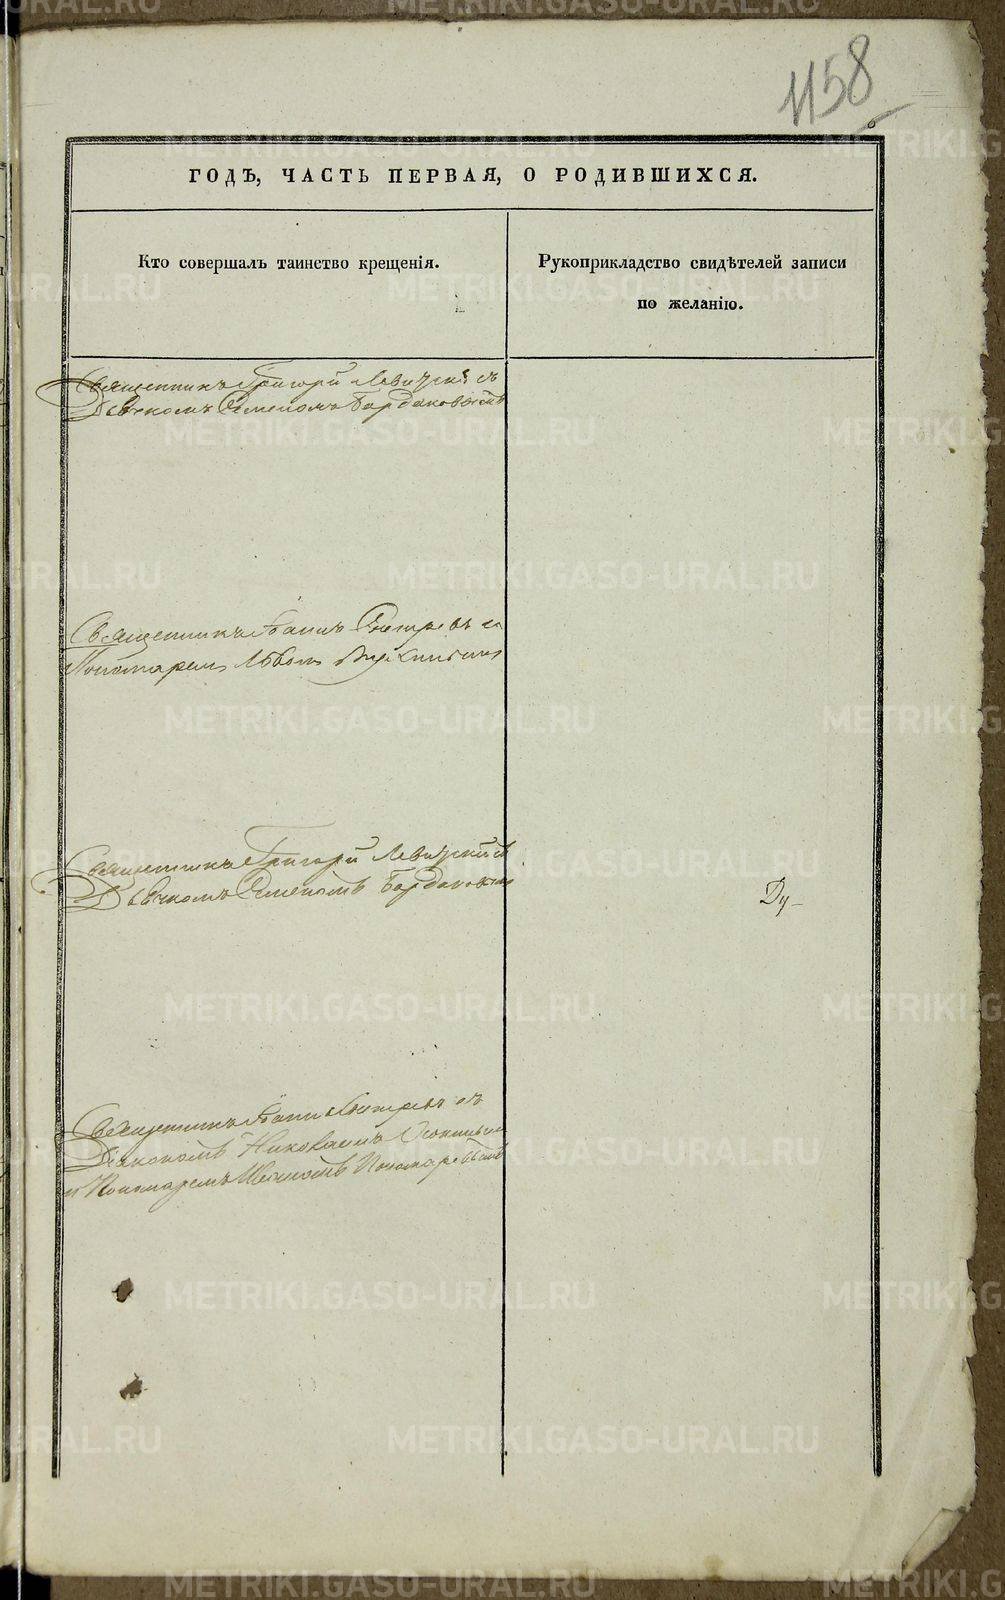 1158
ГОДЪ, ЧАСТЬ ПЕРВАЯ, О РОДИВШИХСЯ.
Кто совершалъ таинство крещенія.
Рукоприкладство свидѣтелей записи
по желанію.
Священникъ Григорій Левицкій съ
Дьячкомъ Семеномъ Бордаковымъ
Священникъ Іоаннъ съ
Пономаремъ Львомъ
Священникъ Григорій Левицкій съ
Дьячкомъ Семеномъ Бордаковымъ
Ду-
Священникъ Іоаннъ съ
Діакономъ Николаемъ
и Пономаремъ Пономаревымъ
METRIKI.GASO-URAL.RU